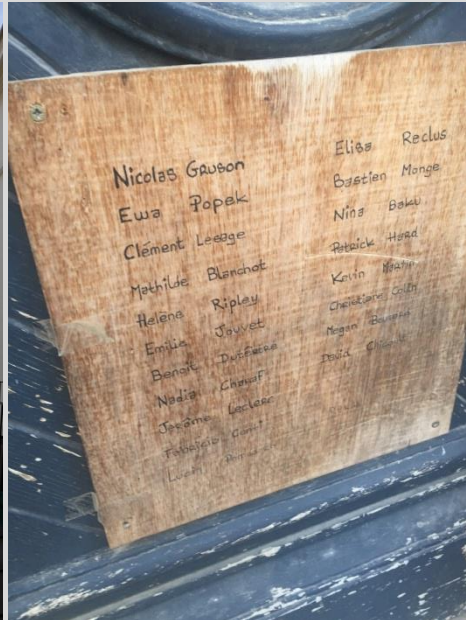 Nicolas Gruson
Ewa Popek
Clément Lesage
Mathilde Blanchot
Helène Ripley
Emilie Jouvet
Benoit
Nadia Chouaf
Jérôme Leclerc
Fabrizio
Lucin
Elisa Reclus
Bastien Monge
Nina Baku
Patrick Herd
Kevin Martin
Christiane Colin
Megan
David